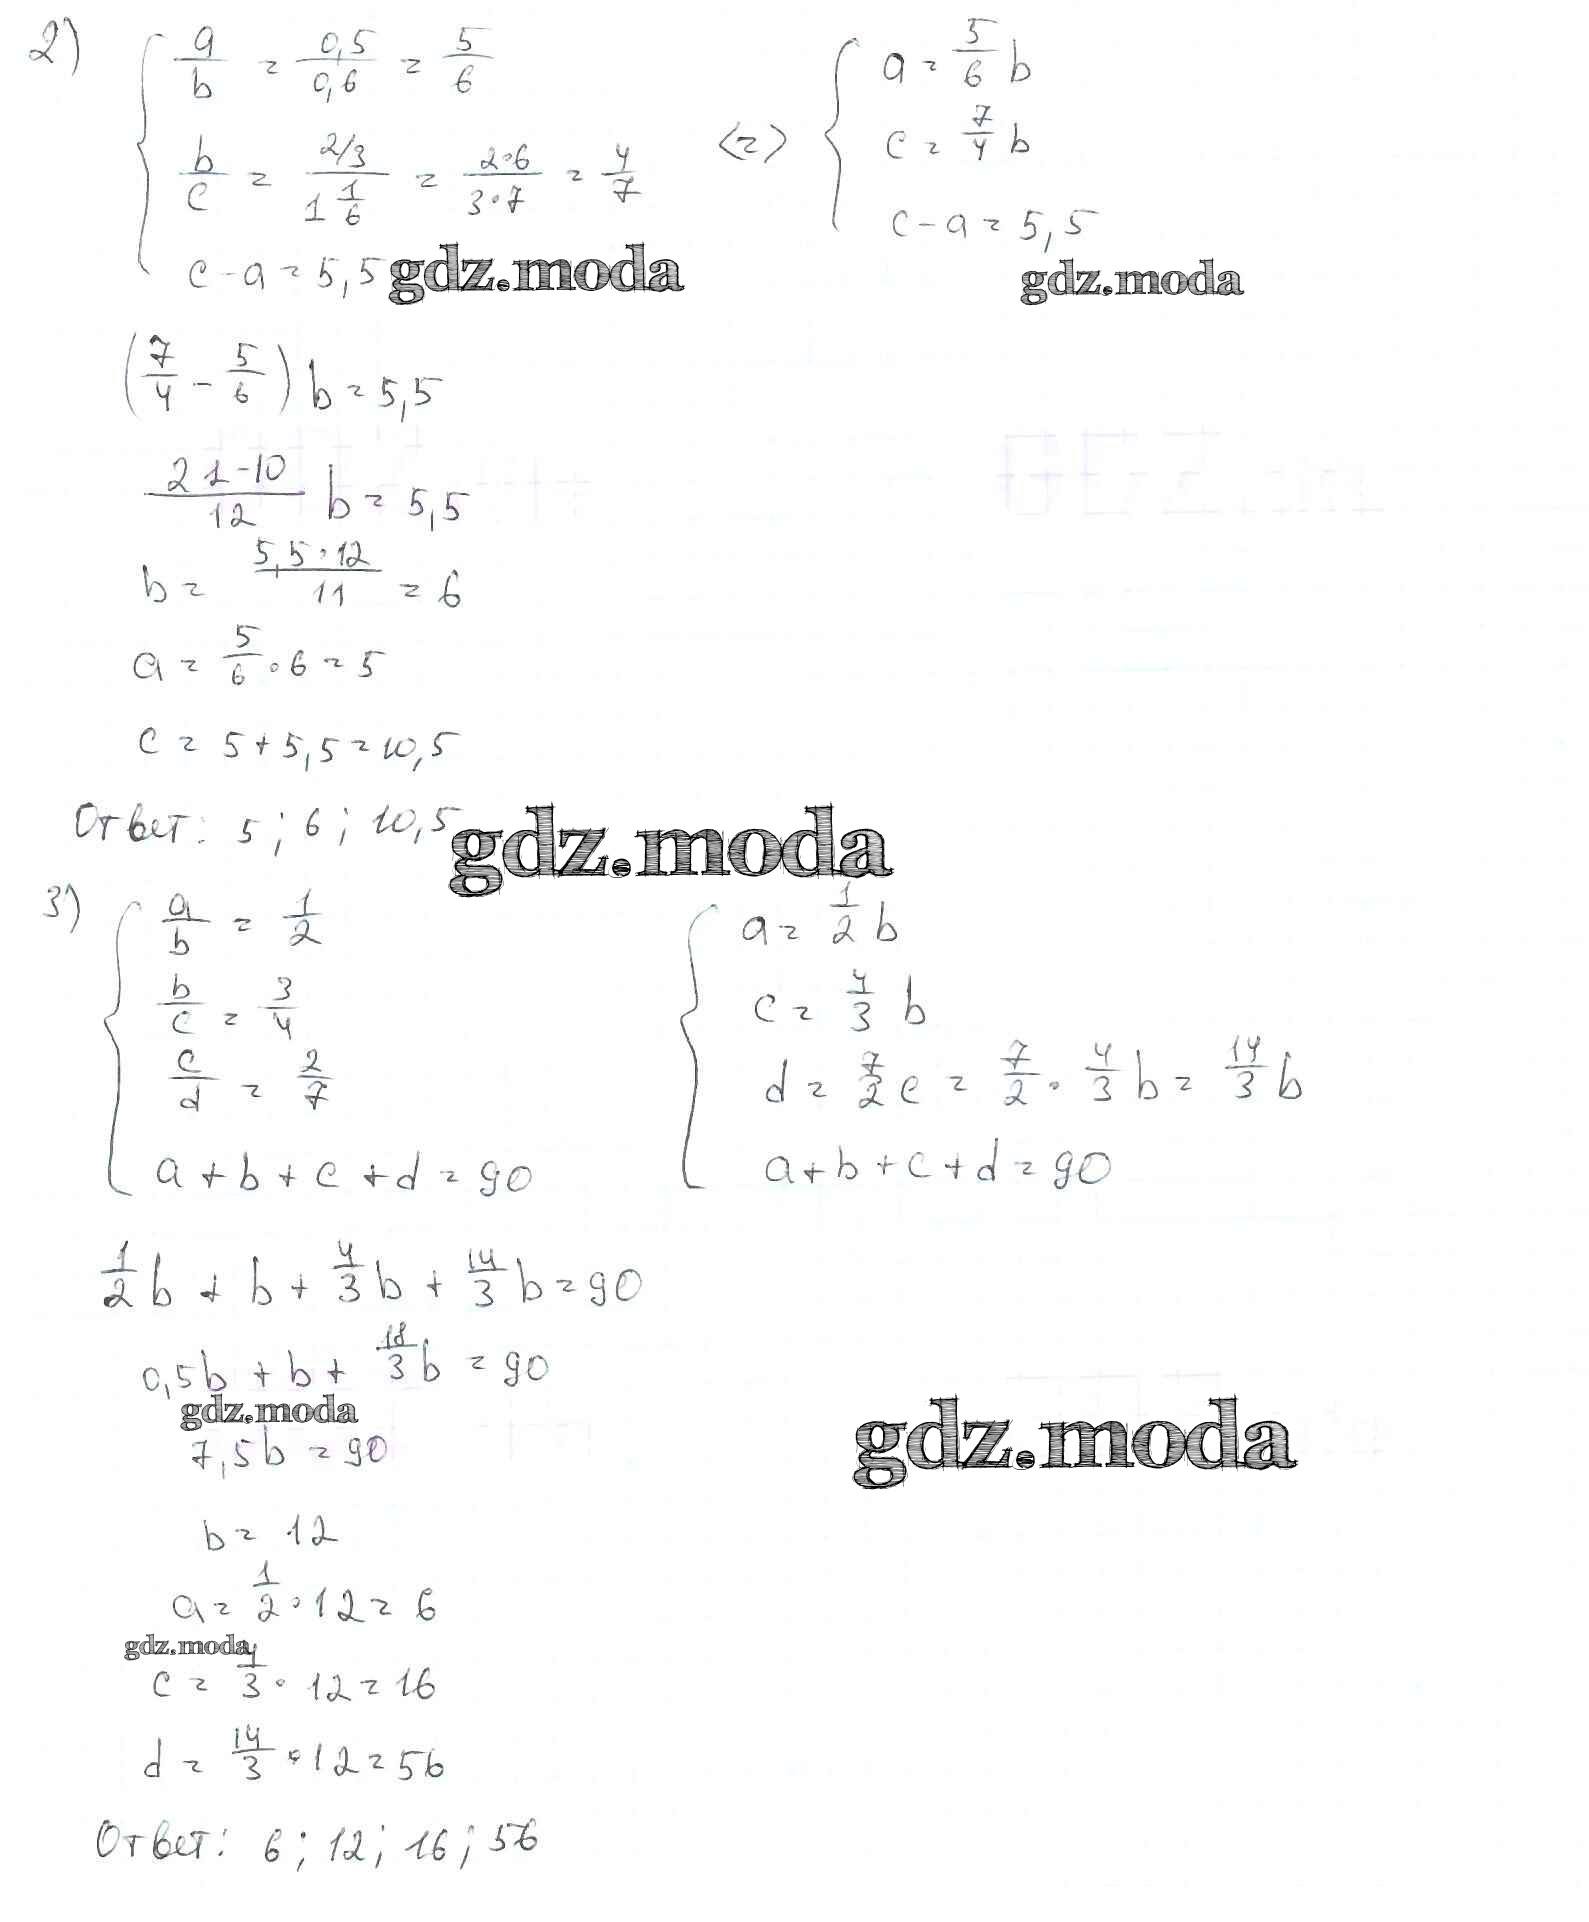 2) a/b = 0,5/0,6 = 5/6
b/c = 2/3 / 1 1/6 = 2·6/3·7 = 4/7
c - a = 5,5 gdz.moda
<=> a = 5/6 b
c = 7/4 b
c - a = 5,5
gdz.moda
(7/4 - 5/6) b = 5,5
21-10/12 b = 5,5
b = 5,5·12/11 = 6
a = 5/6 · 6 = 5
c = 5 + 5,5 = 10,5
Ответ: 5; 6; 10,5 gdz.moda
3) a/b = 1/2
b/c = 3/4
c/d = 2/7
a + b + c + d = 90
a = 1/2 b
c = 4/3 b
d = 7/2 c = 7/2 · 4/3 b = 14/3 b
a + b + c + d = 90
1/2 b + b + 4/3 b + 14/3 b = 90
0,5b + b + 18/3 b = 90
gdz.moda
gdz.moda
7,5b = 90
b = 12
a = 1/2 · 12 = 6
gdz.moda
c = 4/3 · 12 = 16
d = 14/3 · 12 = 56
Ответ: 6; 12; 16; 56